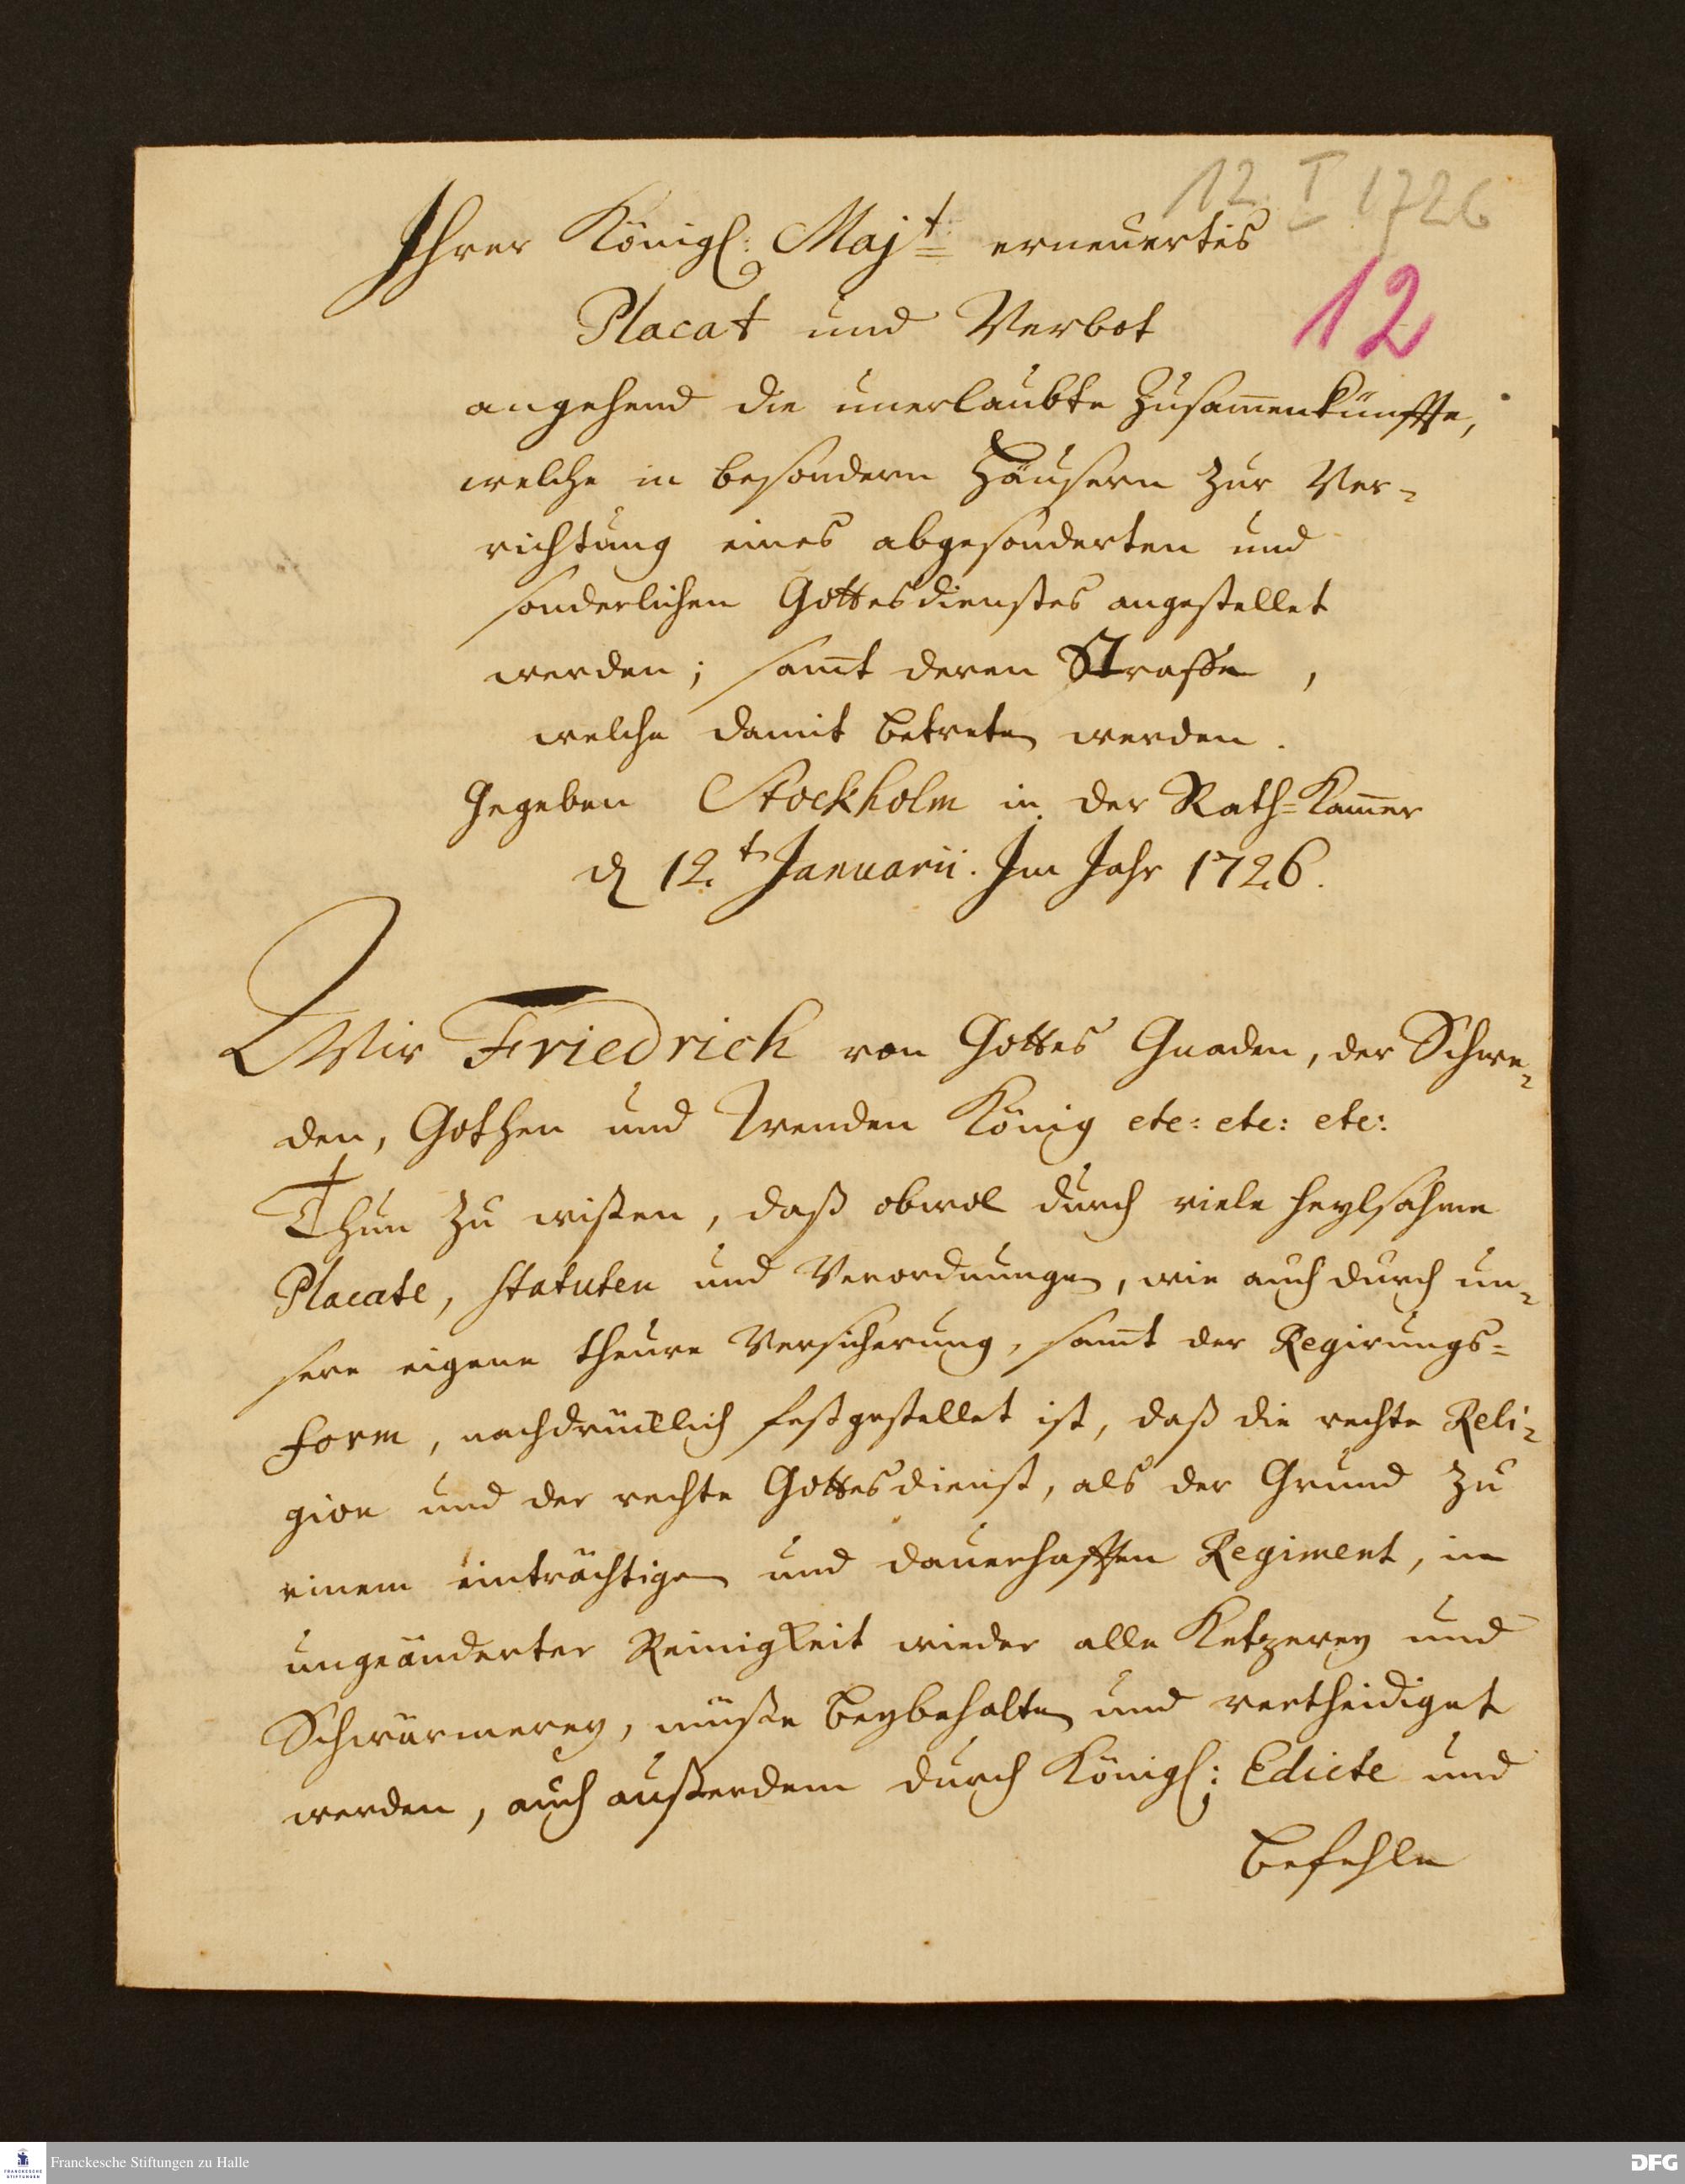 12. I 1726
Ihrer Königl: Maj<sup>t</sup> erneuertes
12
Placat und Verbot
angehend die unerlaubte Zusam̄enkünffte,
welche in besondern Häusern zur Ver-
richtung eines abgesonderten und
sonderlichen Gottesdienstes angestellet
werden; sam̄t deren Straffe,
welche damit betreten werden.
Gegeben Stockholm in der Rath-Kam̄er
d 12.t Januarii. Im Jahr 1726.
Wir Friedrich von Gottes Gnaden, der Schwe-
den, Gothen und Wenden König etc: etc: etc:
Thun zu wißen, daß obwol durch viele heylsahme
Placate, Statuten und Verordnungen, wie auch durch un-
sere eigene theure Versicherung, sam̄t der Regirungs-
Form, nachdrücklich festgestellet ist, daß die rechte Reli-
gion und der rechte Gottesdienst, als der Grund zu
einem einträchtigen und dauerhafften Regiment, in
ungeänderter Reinigkeit wieder alle Ketzerey und
Schwärmerey, müße beybehalten und vertheidiget
werden, auch außerdem durch Königl: Edicte und
Befehle
FRANCKESCHE STIFTUNGEN
Franckesche Stiftungen zu Halle
DFG